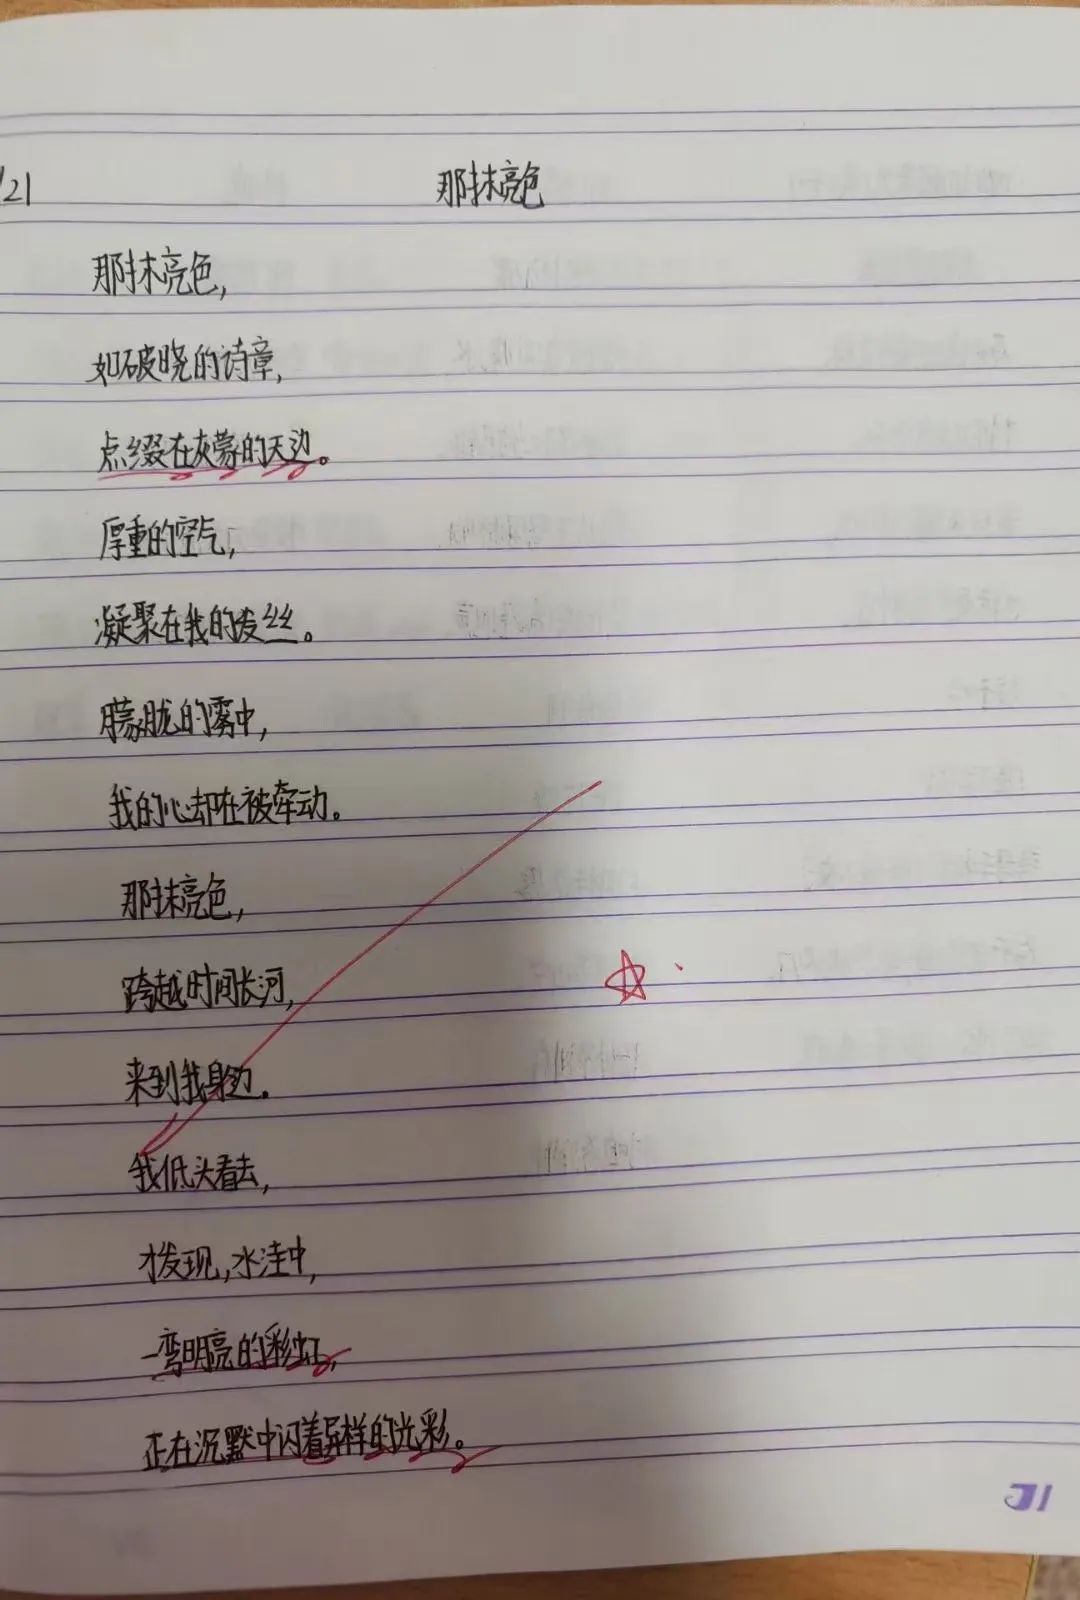 /21
那抹亮色
那抹亮色,
如破晓的诗章,
点缀在灰蒙的天边。
厚重的空气,
凝聚在我的发丝。
朦胧的雾中,
我的心却在被牵动。
那抹亮色,
跨越时间长河,
来到我身边.
我低头看去,
才发现,水洼中,
一弯明亮的彩虹,
正在沉默中闪着异样的光彩。